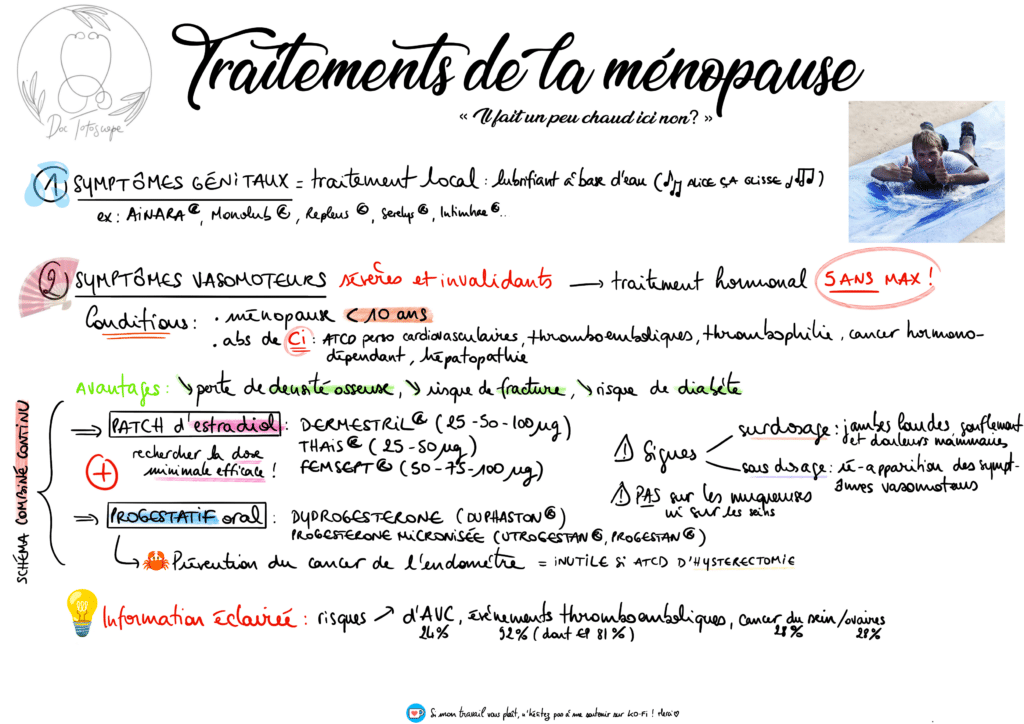 Traitements de la ménopause
« Il fait un peu chaud ici non? »
Doc Totoscope
1 SYMPTÔMES GÉNITAUX = traitement local : lubrifiant à base d'eau (♪♫ ALICE ÇA GLISSE ♩♫♫)
ex : AiNARA®, Monolub®, Repleus®, Serelys®, Intimhae®..
2 SYMPTÔMES VASOMOTEURS sévères et invalidants → traitement hormonal 5 ANS MAX !
Conditions : . ménopause < 10 ans
. abs de Ci : ATCD perso cardiovasculaires, thromboemboliques, thrombophilie, cancer hormono-
dépendant, hépatopathie
Avantages : ↘ perte de densité osseuse, ↘ risque de fracture, ↘ risque de diabète
SCHÉMA COMBINÉ CONTINU
⇒ PATCH d'estradiol : DERMESTRIL® (25 - 50 - 100 µg)
rechercher la dose THAÏS® (25 - 50 µg)
minimale efficace ! FEMSEPT® (50 - 75 - 100 µg)
+
⚠ Signes
surdosage : jambes lourdes, gonflement
et douleurs mammaires
sous dosage : ré-apparition des sympt-
ômes vasomoteurs
⚠ PAS sur les muqueuses
ni sur les seins
⇒ PROGESTATIF oral : DYDROGESTERONE (DUPHASTON®)
PROGESTERONE MICRONISÉE (UTROGESTAN®, PROGESTAN®)
↳ Prévention du cancer de l'endomètre = INUTILE SI ATCD D'HYSTERECTOMIE
Information éclairée : risques ↗ d'AVC, évènements thromboemboliques, cancer du sein/ovaires
24% 92% (dont EP 81%) 28% 28%
Si mon travail vous plaît, n'hésitez pas à me soutenir sur KO-FI ! Merci ♡